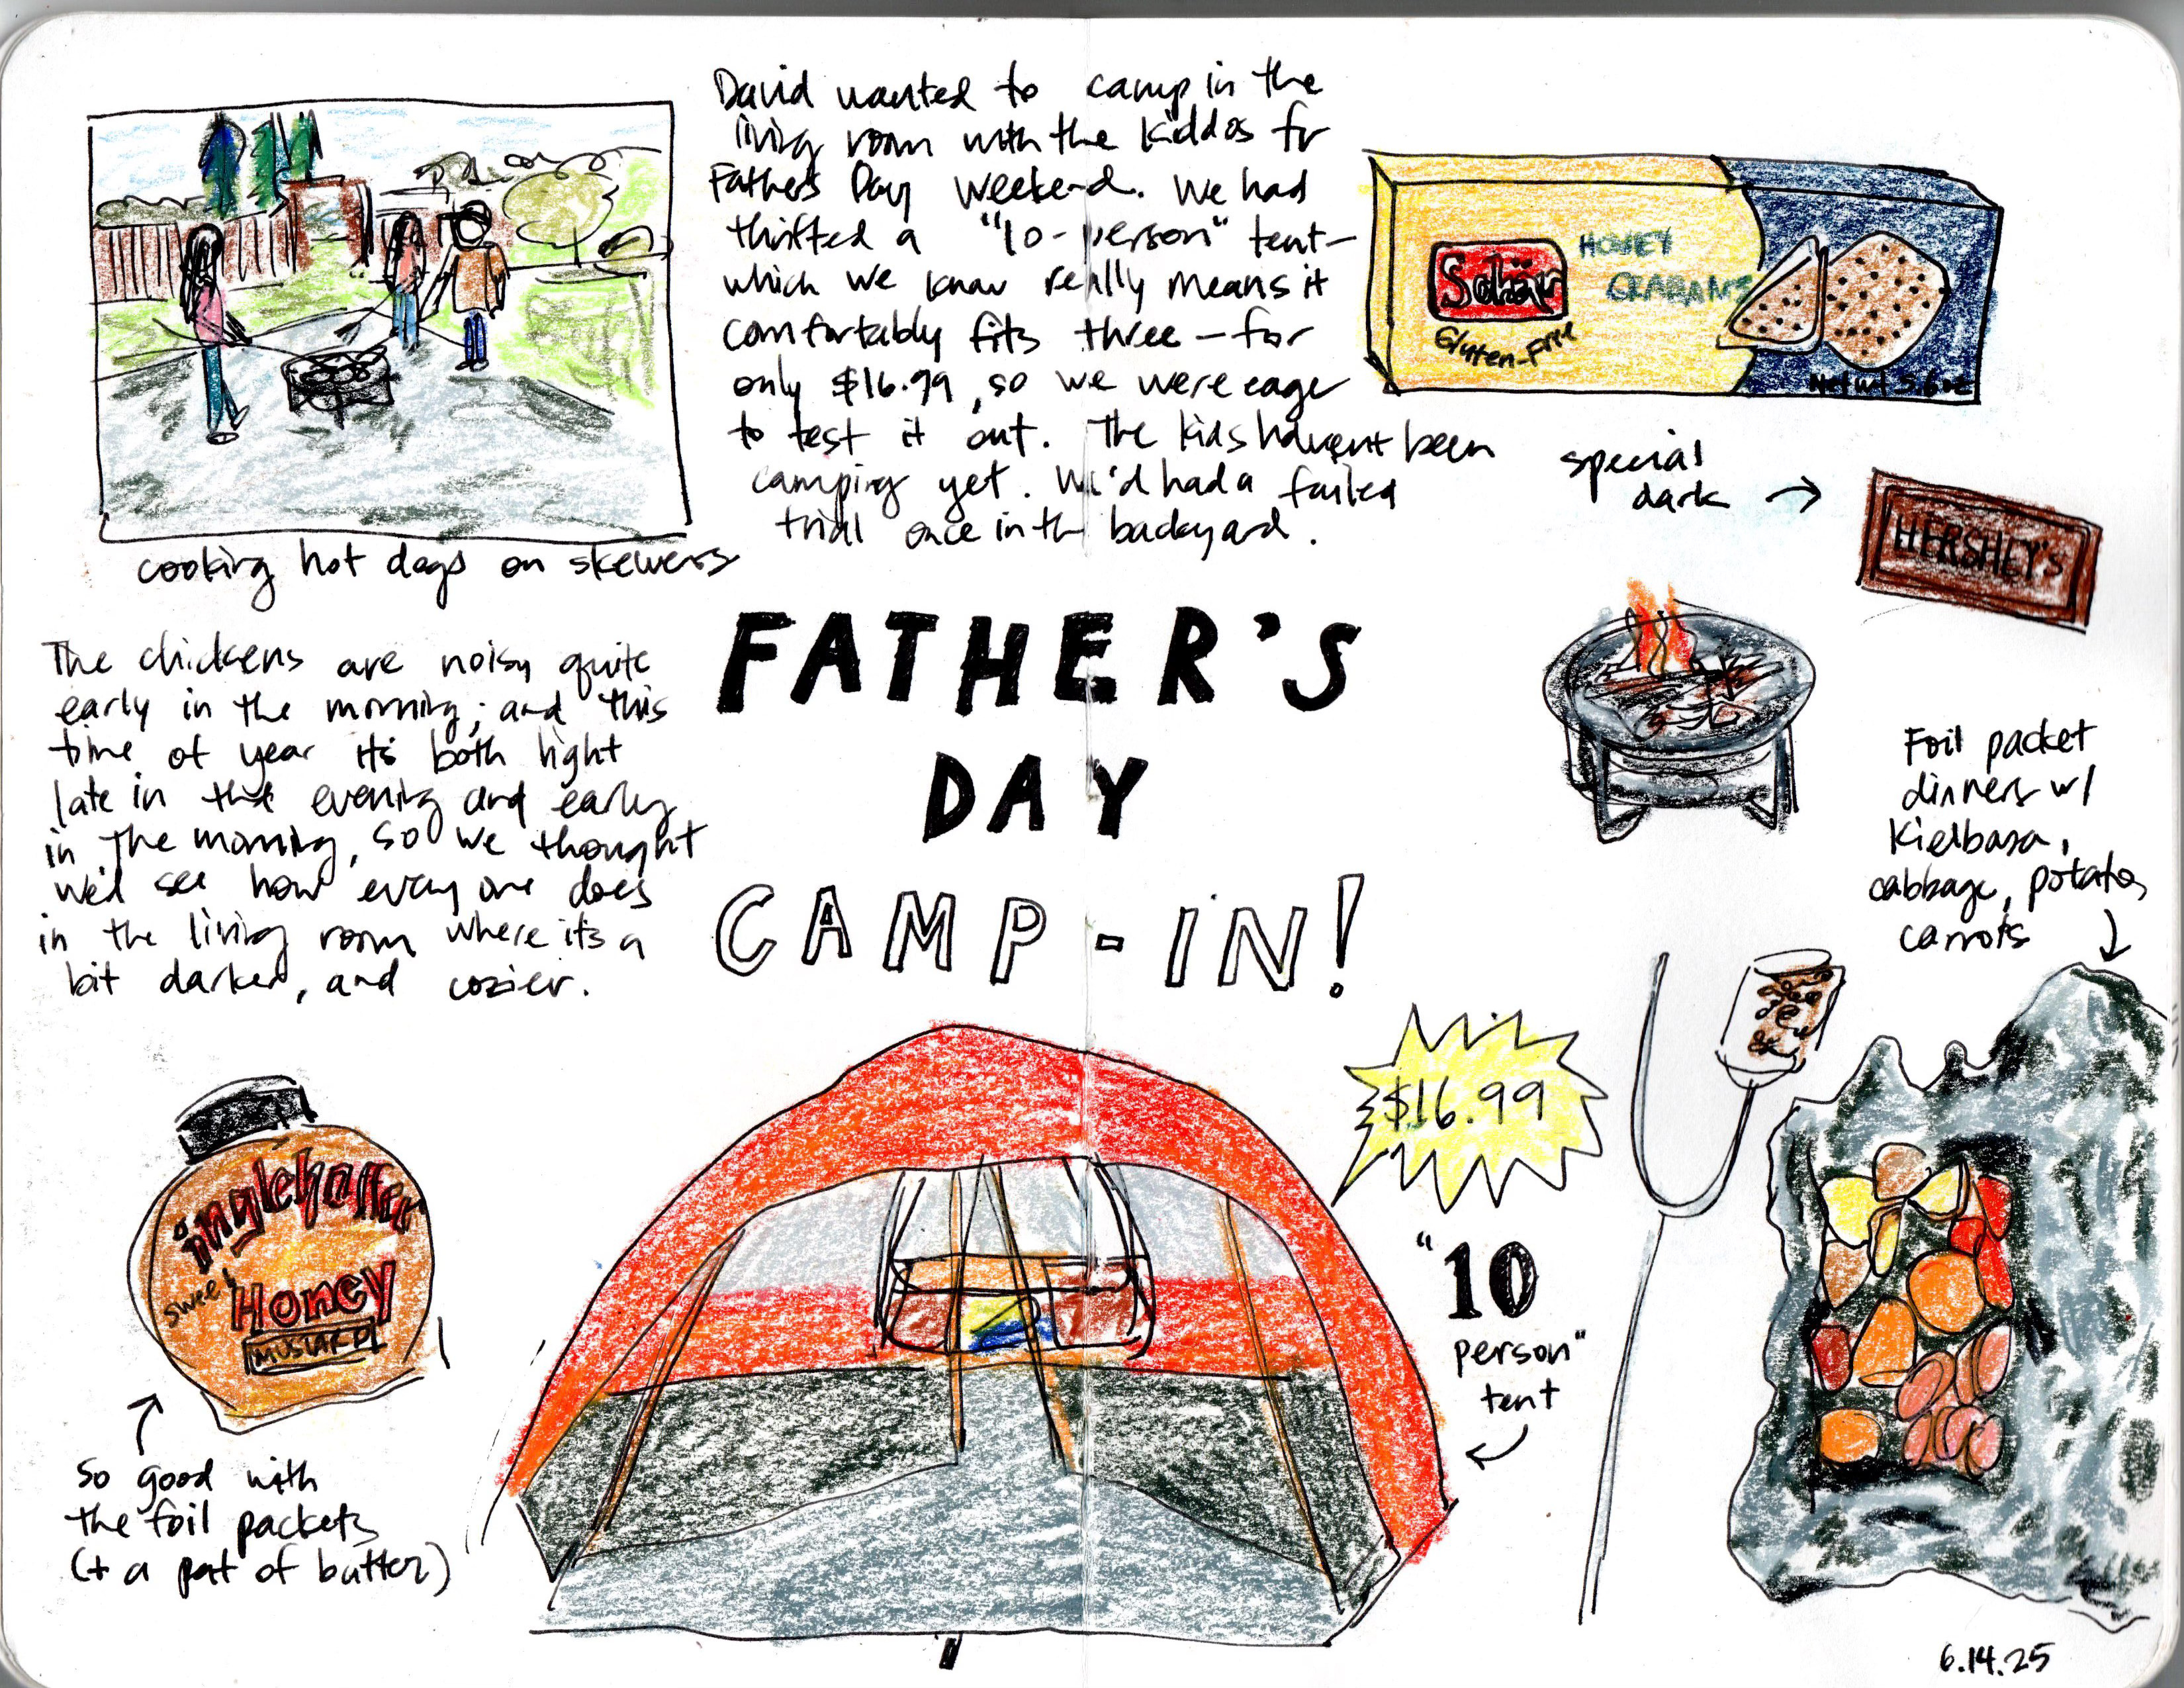 David wanted to camp in the
living room with the kiddos for
Father's Day weekend. We had
thrifted a "10-person" tent—
which we know really means it
comfortably fits three—for
only $16.99, so we were eager
to test it out. The kids haven't been
camping yet. We'd had a failed
trial once in the backyard.
cooking hot dogs on skewers
Schär
Gluten-Free
HONEY
GRAHAMS
Net wt 5.6 oz
special
dark →
HERSHEY'S
FATHER'S
DAY
CAMP-IN!
The chickens are noisy quite
early in the morning; and this
time of year it's both light
late in the evening and early
in the morning, so we thought
we'd see how everyone does
in the living room where it's a
bit darker, and cozier.
Foil packet
dinners w/
kielbasa,
cabbage, potatoes,
carrots
inglehoffer
sweet
Honey
MUSTARD
so good with
the foil packets
(+ a pat of butter)
$16.99
"10
person"
tent
6.14.25